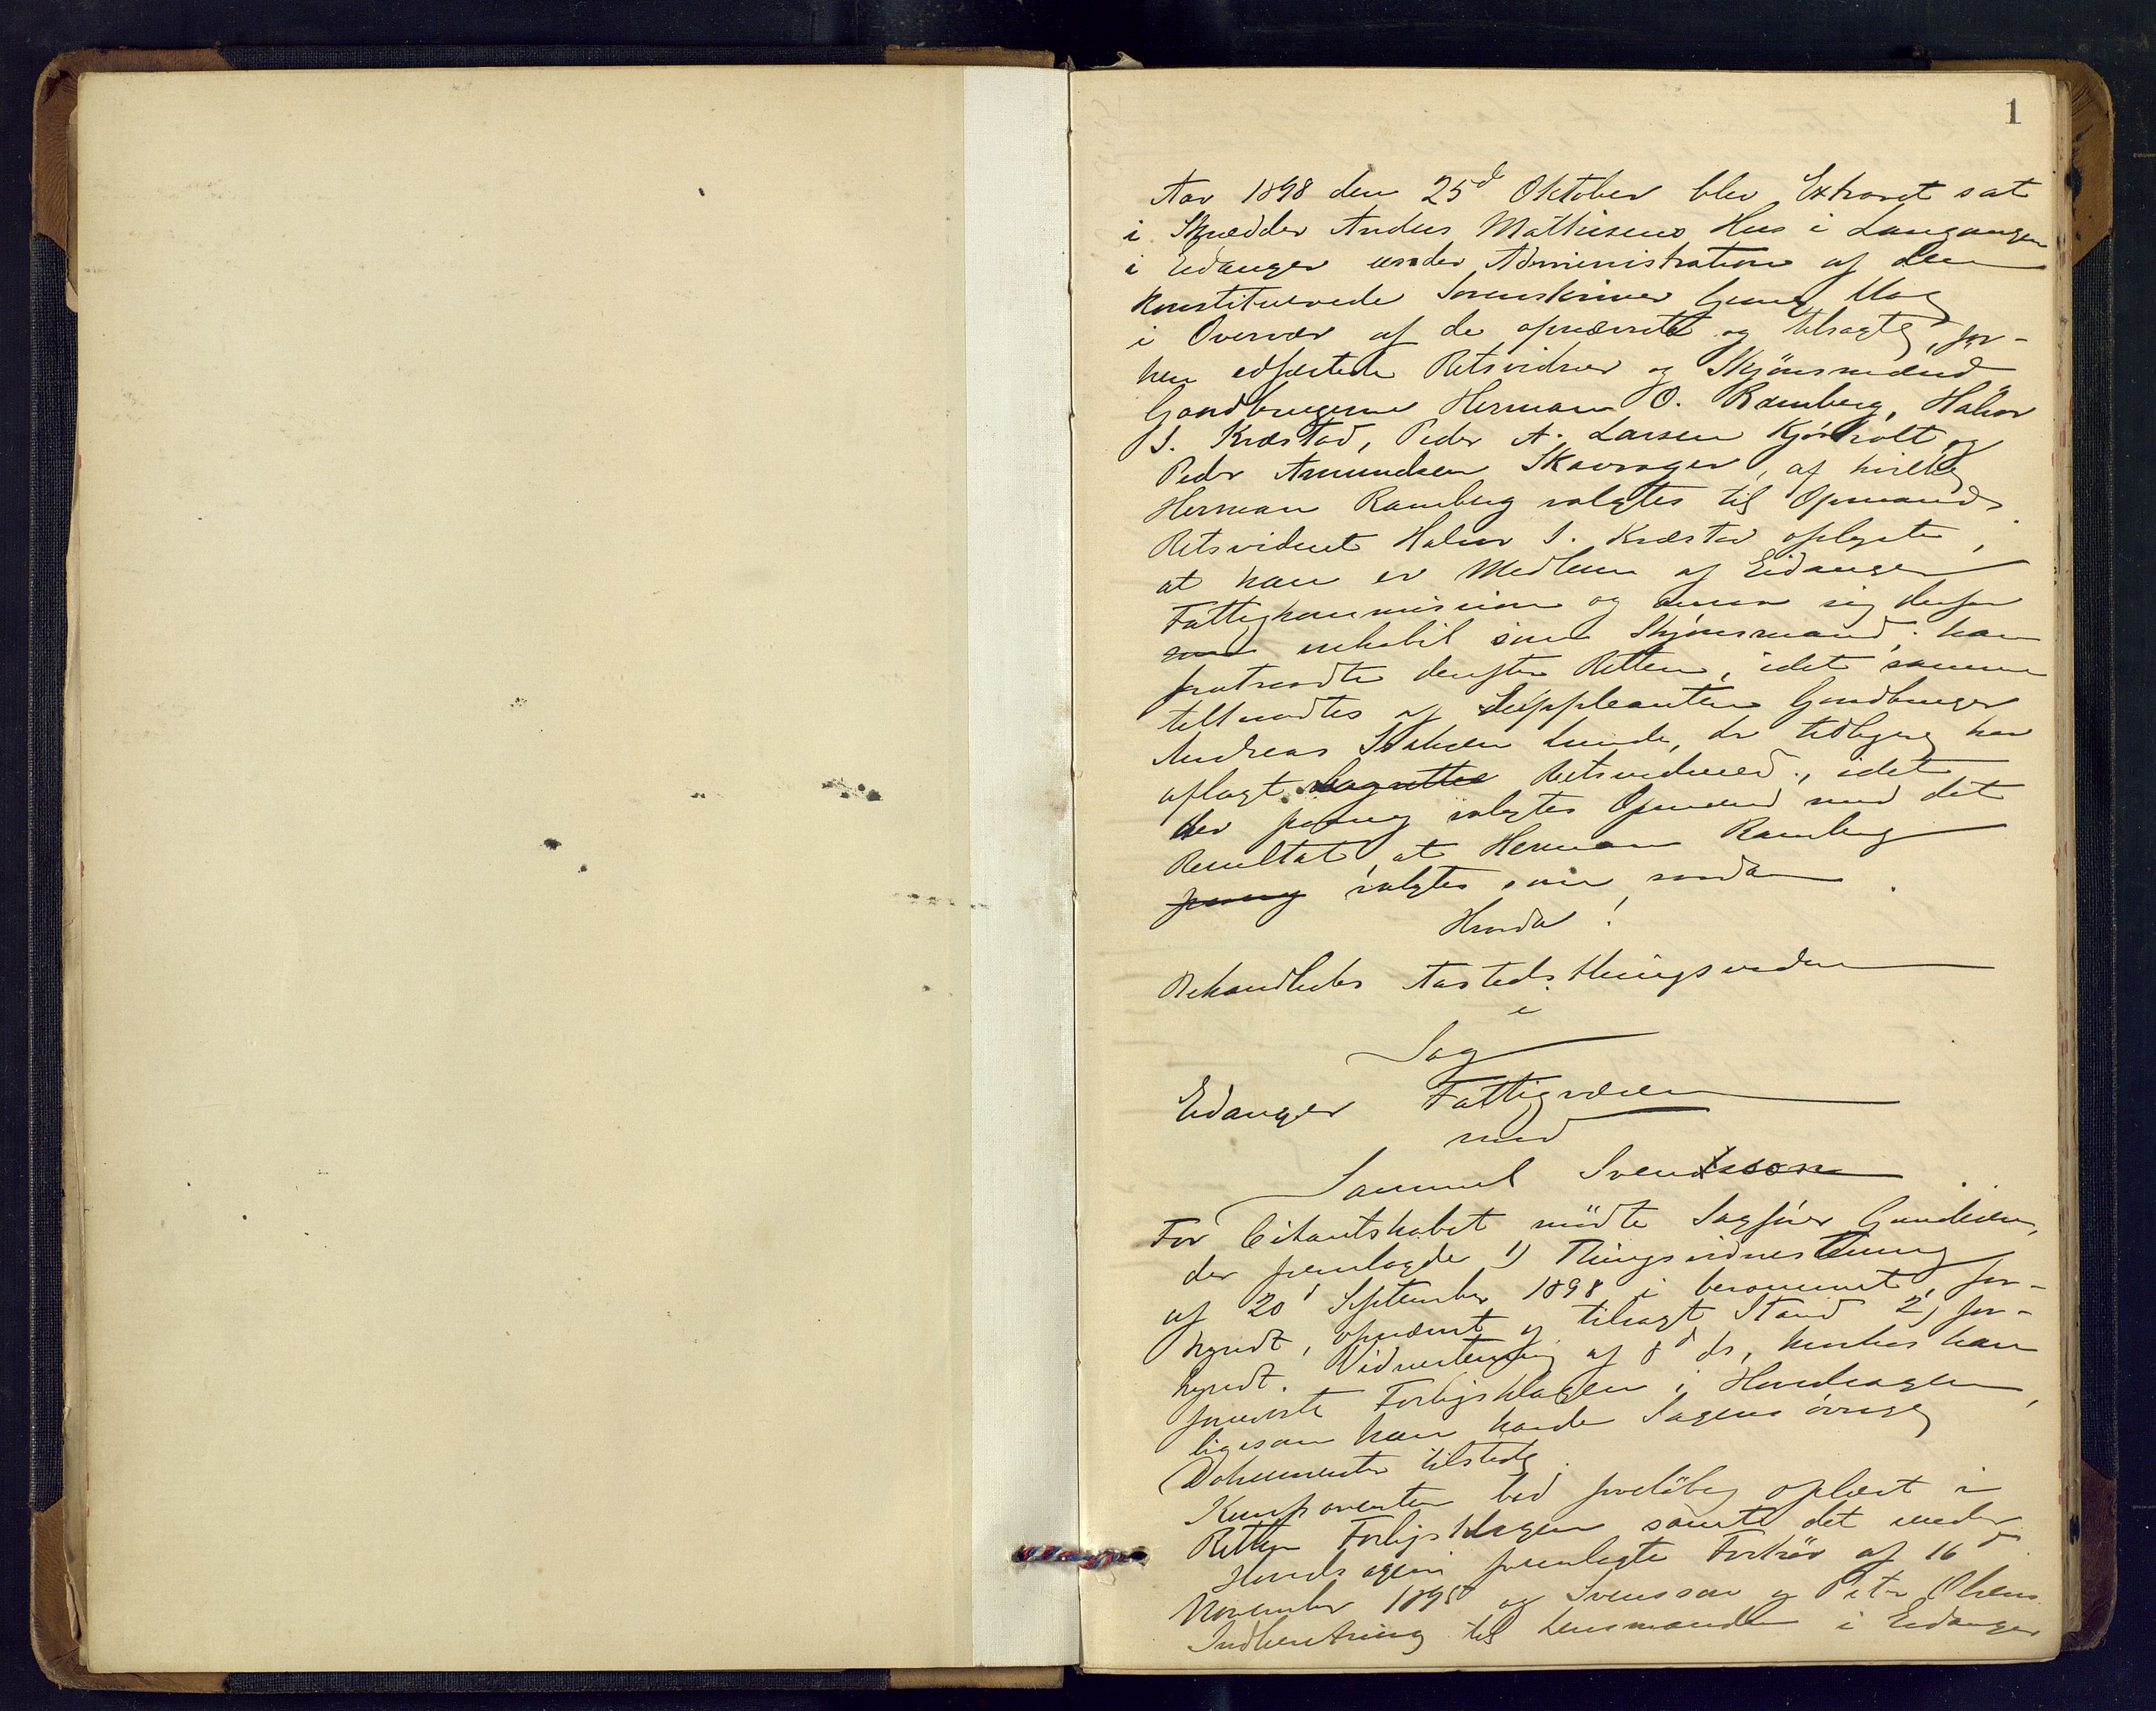 1
Aar 1898 den 25de Oktober blev Extraret sat
i Skrædder Anders Mathisens Hus i Langangen
i Eidanger under Administration af den
konstituerede Sorenskriver
i Overvær af de opnævnte og tilsagte, for-
hen edfæstede Retsvidner og Skjønsmænd
Gaardbrugerne Herman O. Ramberg, Halvor
J. Kræstad, Peder A. Larsen Kjørholt og
Peder Amundsen Skavrager, af hvilke
Herman Ramberg valgtes til Opmand.
Retsvidnet Halvor J. Kræstad oplyste,
at han er Medlem af Eidanger
Fattigkommission og anser sig derfor
som inhabil som Skjønsmand; han
fratraadte derefter Retten, idet samme
tiltraadtes af Suppleanten Gaardbruger
Andreas Isaksen Lunde, der tidligere har
aflagt Lagrettes Retsvidneed, idet
der paany valgtes Opmand med det
Resultat, at Herman Ramberg
paany valgtes som saadan.
Hvorda!
Behandledes Aasteds thingsvidne
i
Sag
Eidanger Fattigvæsen
mod
Samuel Svensson.
For Citantskabet mødte Sagfører Gundersen,
der fremlagde 1) Thingsvidnestevning
af 20d September 1898 i berammet, for-
kyndt, opnævnt og tilsagt Stand 2) for-
kyndt. Vidnestevning af 8d ds, hvorhos han
foreviste Forligsklagen i Hovedsagen,
ligesom han havde Sagens øvrige
Dokumenter tilstede.
Komparenten bad foreløbig oplæst i
Retten Forligsklagen samt det under
Hovedsagen fremlagte Forhør af 16d
November 1895 og Svensson og Peter Olsens
Indberetning til Lensmanden i Eidanger